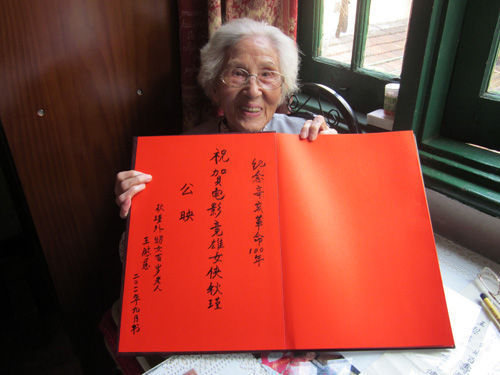 纪念辛亥革命100年
祝贺电影竞雄女侠秋瑾
公映
秋瑾外甥女百岁老人
王慰慈
二〇一一年九月书